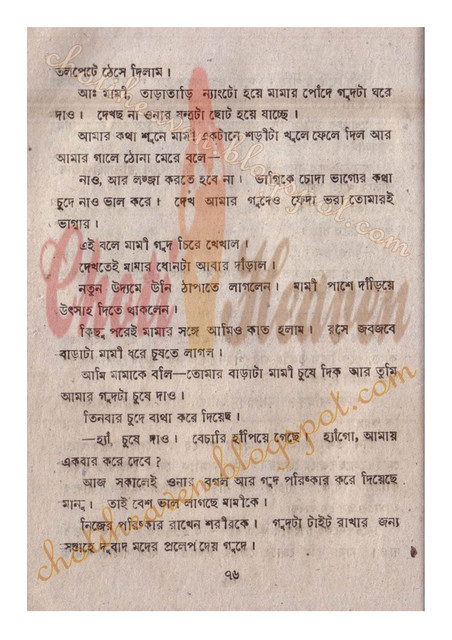 তলপেটে ঠেসে দিলাম।
আঃ মামী, তাড়াতাড়ি ন্যাংটো হয়ে মামার পোঁদে গুদটা ঘষে
দাও। দেখছ না ওনার যন্ত্রটা ছোট হয়ে যাচ্ছে।
আমার কথা শুনে মামী একটানে শাড়ীটা খুলে ফেলে দিল আর
আমার গালে ঠোনা মেরে বলে—
নাও, আর লজ্জা করতে হবে না। ভাগ্নিকে চোদা ভাগ্যের কথা
চুদে নাও ভাল করে। দেখ আমার গুদেও ফ্যেদা ভরা তোমারই
ভাগ্নার।
এই বলে মামী গুদ চিরে দেখাল।
দেখতেই মামার ধোনটা আবার দাঁড়াল।
নতুন উদ্যমে উনি ঠাপাতে লাগলেন। মামী পাশে দাঁড়িয়ে
উৎসাহ দিতে থাকলেন।
কিছু পরেই মামার সঙ্গে আমিও কাত হলাম। রসে জবজবে
বাড়াটা মামী ধরে চুষতে লাগল।
আমি মামাকে বলি—তোমার বাড়াটা মামী চুষে দিক আর তুমি
আমার গুদটা চুষে দাও।
তিনবার চুদে ব্যথা করে দিয়েছে।
—হ্যাঁ, চুষে দাও। বেচারি হাঁপিয়ে গেছে। হ্যাঁগো, আমায়
একবার করে দেবে?
আজ সকালেই ওনার বগল আর গুদ পরিষ্কার করে দিয়েছে
মানু। তাই বেশ ভাল লাগছে মামীকে।
নিজের পরিষ্কার রাখেন শরীরকে। গুদটা টাইট রাখার জন্য
সপ্তাহে দুবার মদের প্রলেপ দেয় গুদে।
৭৬
Choti Heaven
chotiheaven.blogspot.com
chotiheaven.blogspot.com